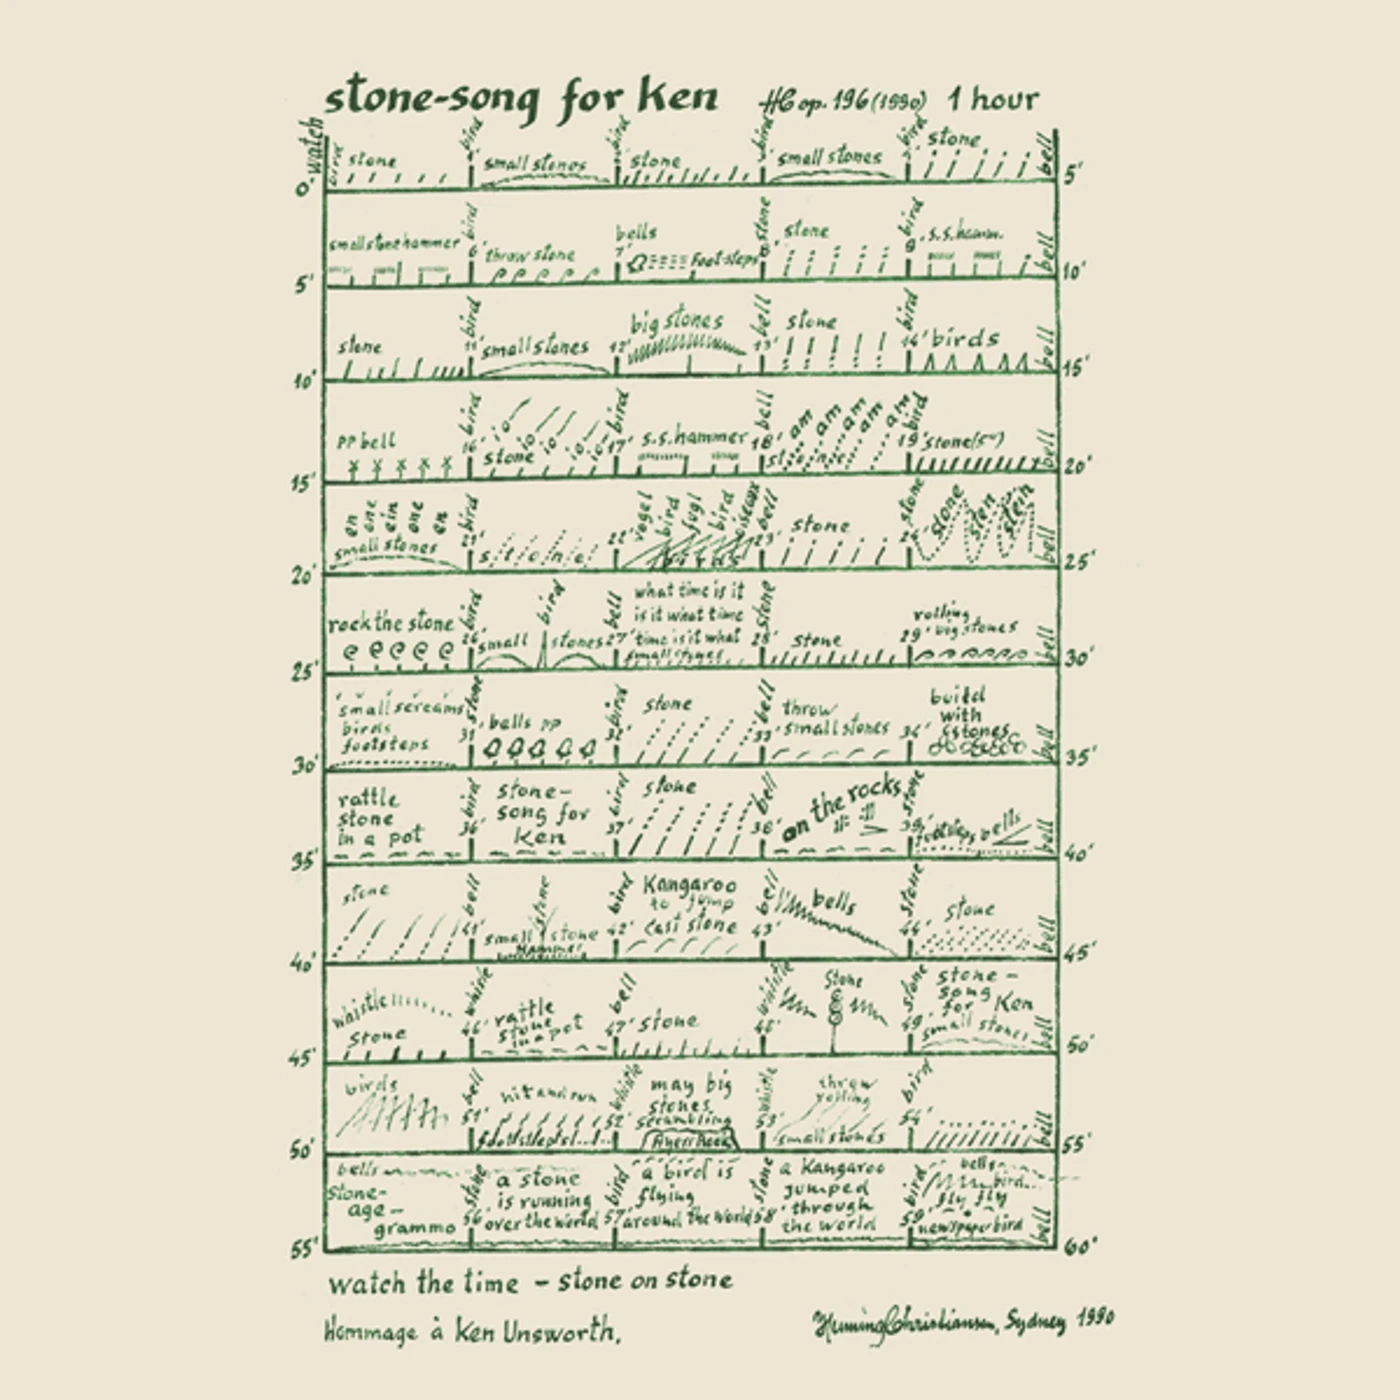 stone-song for Ken HC op. 196 (1990) 1 hour
0'-watch bird stone bird small stones bird stone bird small stones bird stone bell 5'
5' small stone hammer bird 6' throw stone bells 7' Foot-steps stone 8' stone bird 9' s.s.hamm. bell 10'
10' stone bird 11' small stones 12' big stones bell 13' stone bird 14' birds bell 15'
15' pp bell bird 16' stone bird 17' s.s.hammer bell 18' am am am am am stone bird 19' stone(5") bell 20'
20' en one ein one en small stones bird 21' stone 22' vogel bird fugl bird oiseaux birds bell 23' stone stone 24' stone sten stein bell 25'
25' rock the stone bird 26' small bird stones bell 27' what time is it
is it what time
time is it what
small stones stone 28' stone 29' rolling big stones bell 30'
30' small screams
birds
footsteps stone 31' bells pp bird 32' stone bell 33' throw
small stones 34' build
with
stones bell 35'
35' rattle
stone
in a pot bird 36' stone-
song for
Ken bird 37' stone bell 38' on the rocks stone 39' footsteps bells bell 40'
40' stone bell 41' small stone stone hammer bird 42' Kangaroo
to jump
cast stone bell 43' bells stone 44' stone bell 45'
45' whistle
stone whistle 46' rattle
stone
in a pot bell 47' stone whistle 48' stone stone 49' stone-
song
for Ken
small stones bell 50'
50' birds bell 51' hit and run
footsteps whistle 52' may big
stones
scrambling
Ayers Rock whistle 53' throw
rolling
small stones bird 54' bell 55'
55' bells
stone-
age-
grammo stone 56' a stone
is running
over the world bird 57' a bird is
flying
around the world stone 58' a Kangaroo
jumped
through
the world bird 59' bells
bird
fly fly
newspaperbird bell 60'
watch the time - stone on stone
Hommage à Ken Unsworth.
Henning Christiansen, Sydney 1990